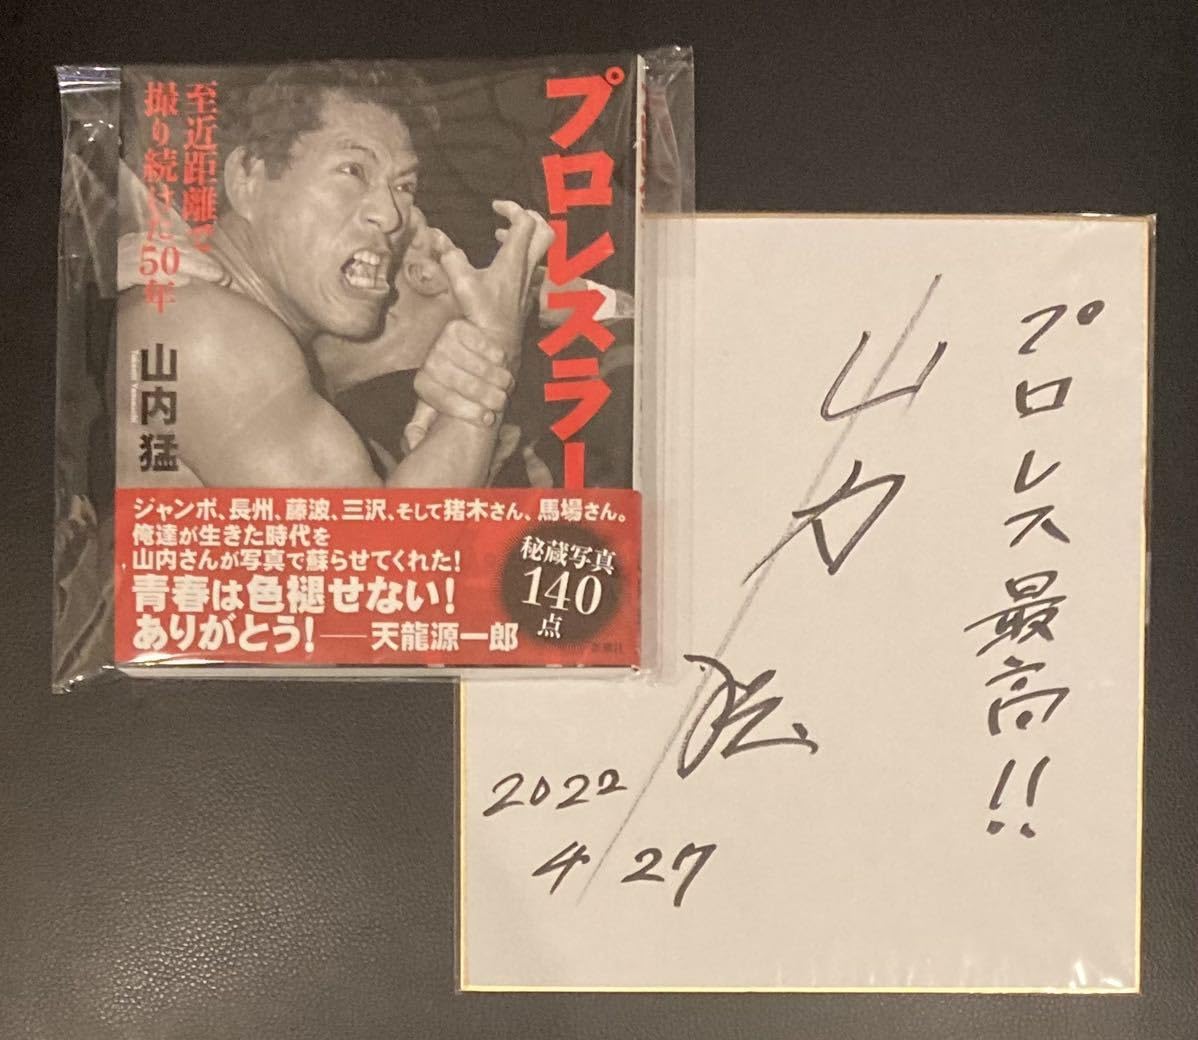 プロレスラー
至近距離で
撮り続けた50年
山内猛
ジャンボ、長州、藤波、三沢、そして猪木さん、馬場さん。
俺達が生きた時代を
山内さんが写真で蘇らせてくれた!
青春は色褪せない!
ありがとう!――天龍源一郎
秘蔵写真
140
点
新潮社
プロレス最高!!
2022
4/27